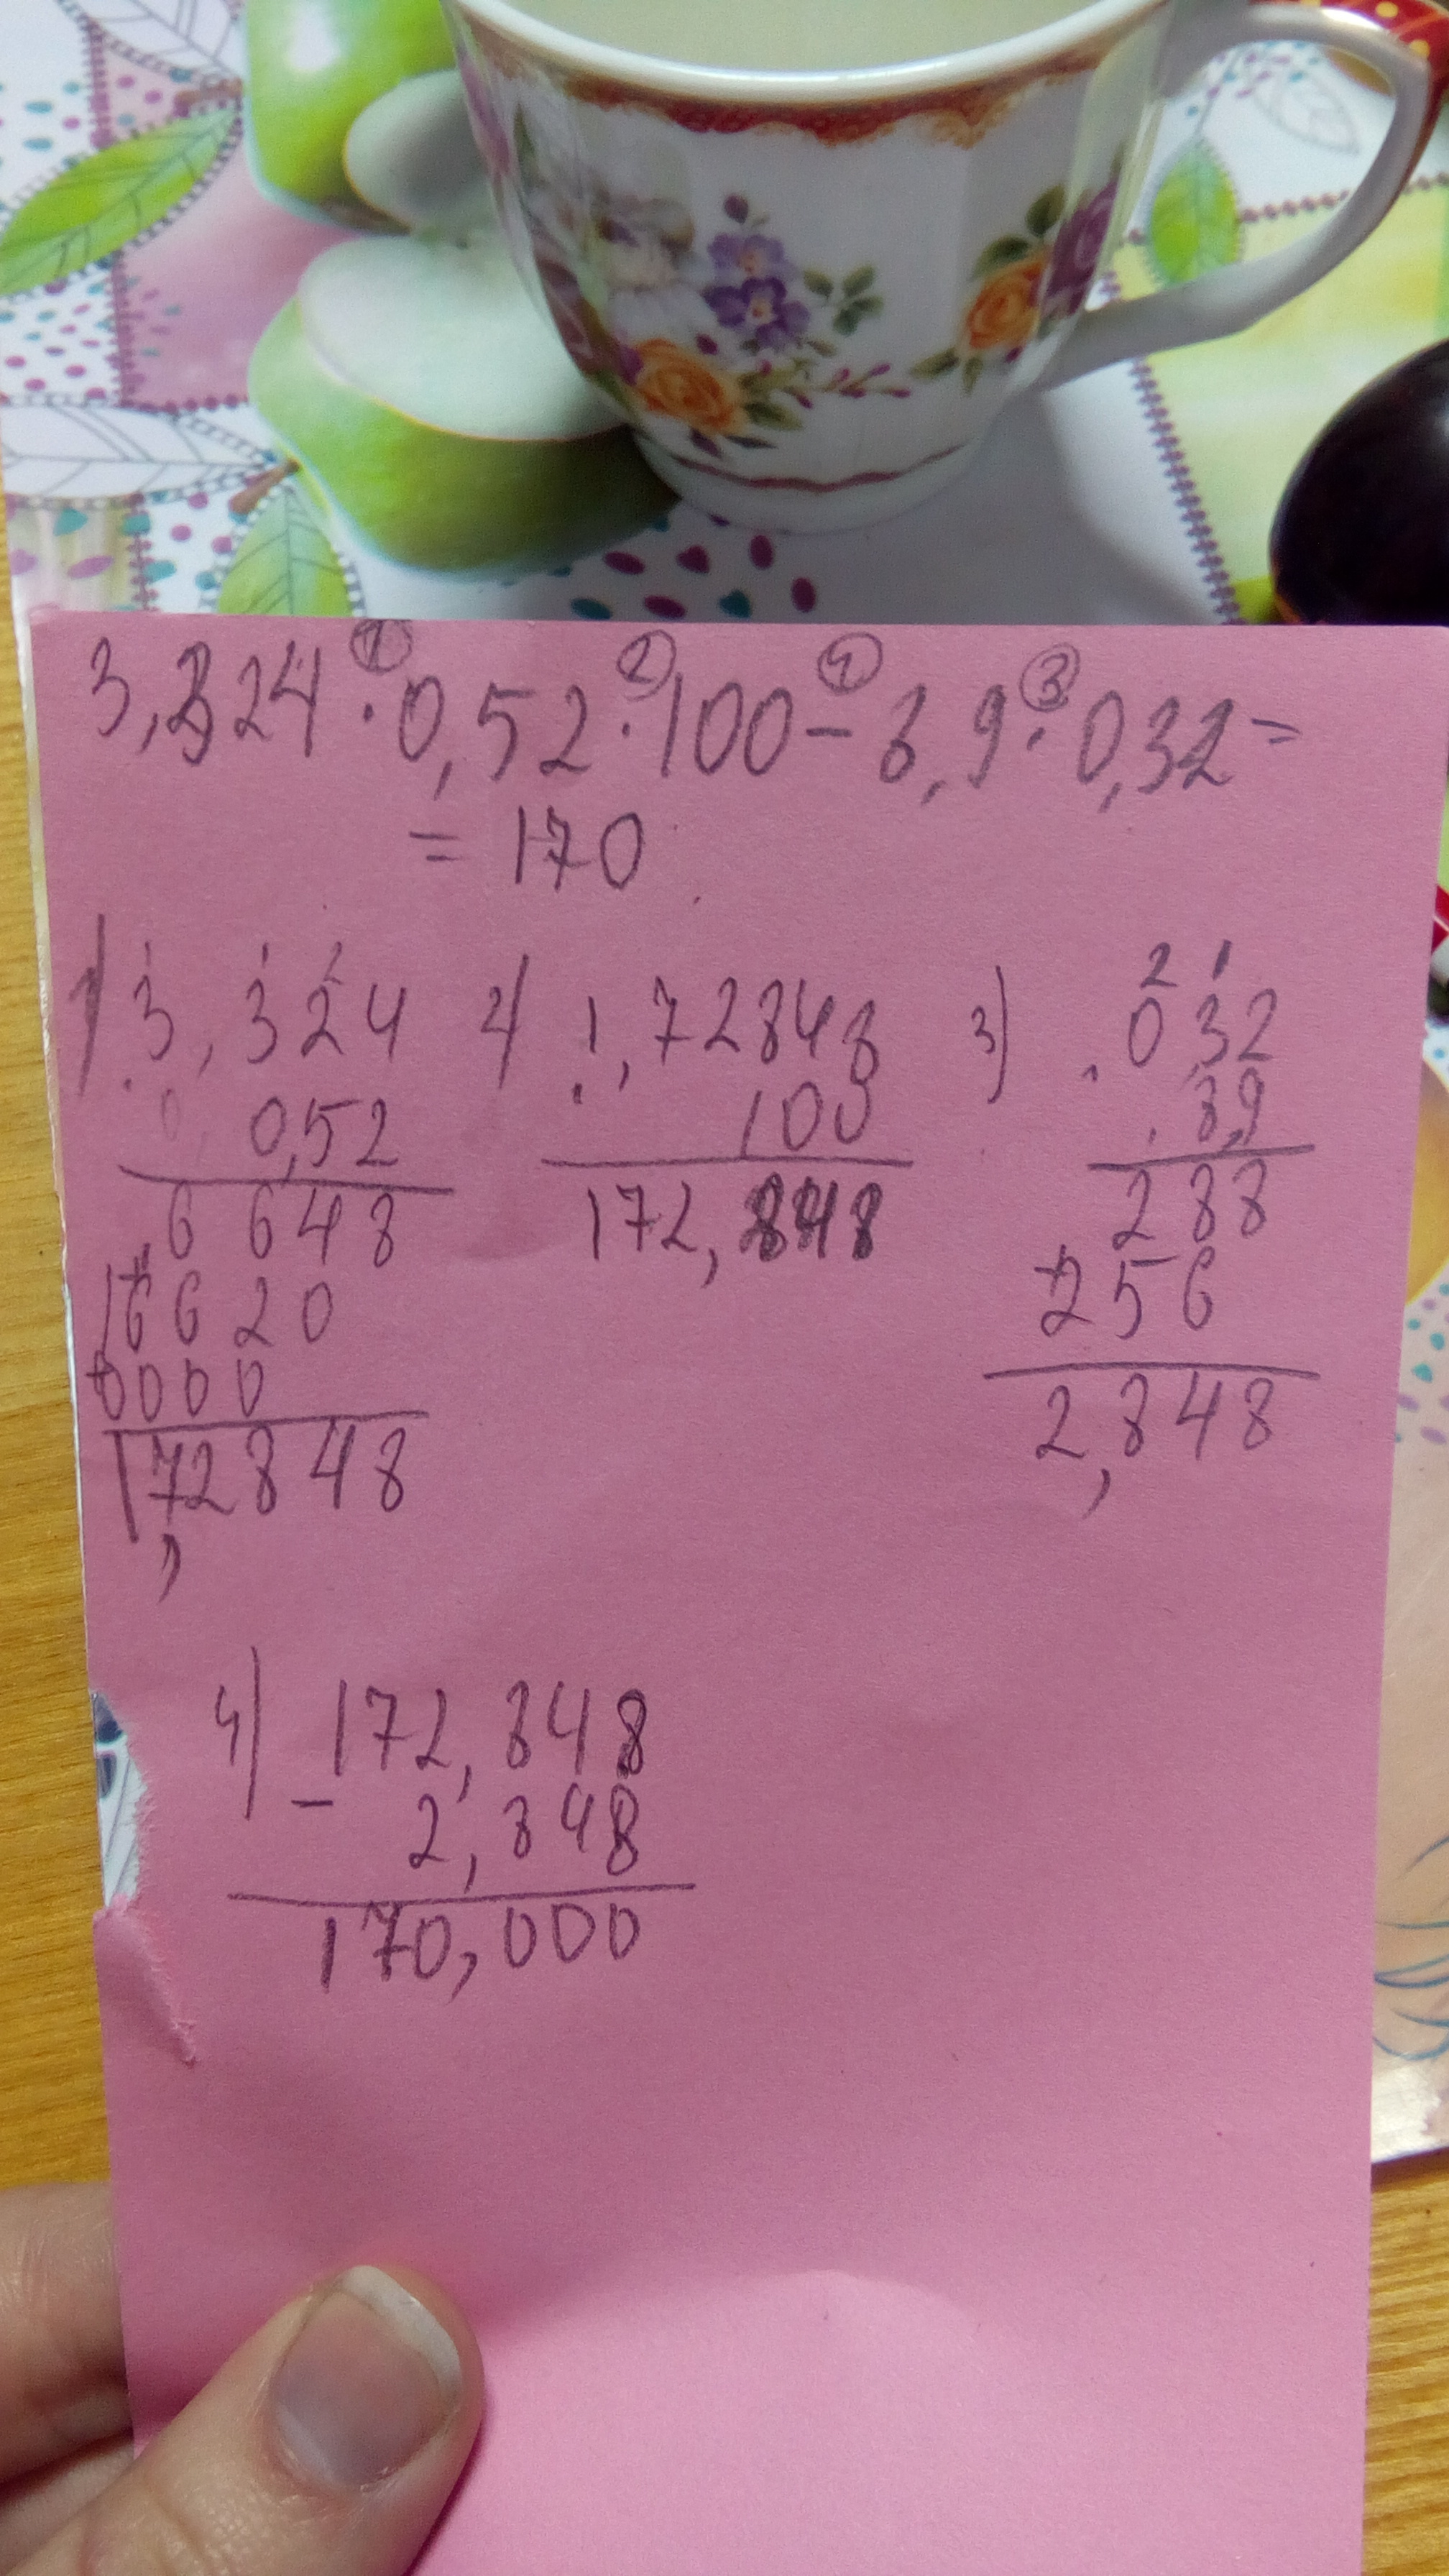 3,324 · 0,52 · 100 - 8,9 · 0,32 =
① ② ④ ③
= 170
1) 3,324
0,52
6 6 4 8
1 6 6 2 0
+ 0 0 0 0
1,72848
2) 1,72848
100
172,848
3) 0,32
8,9
288
+ 256
2,848
4) 172,848
- 2,848
170,000